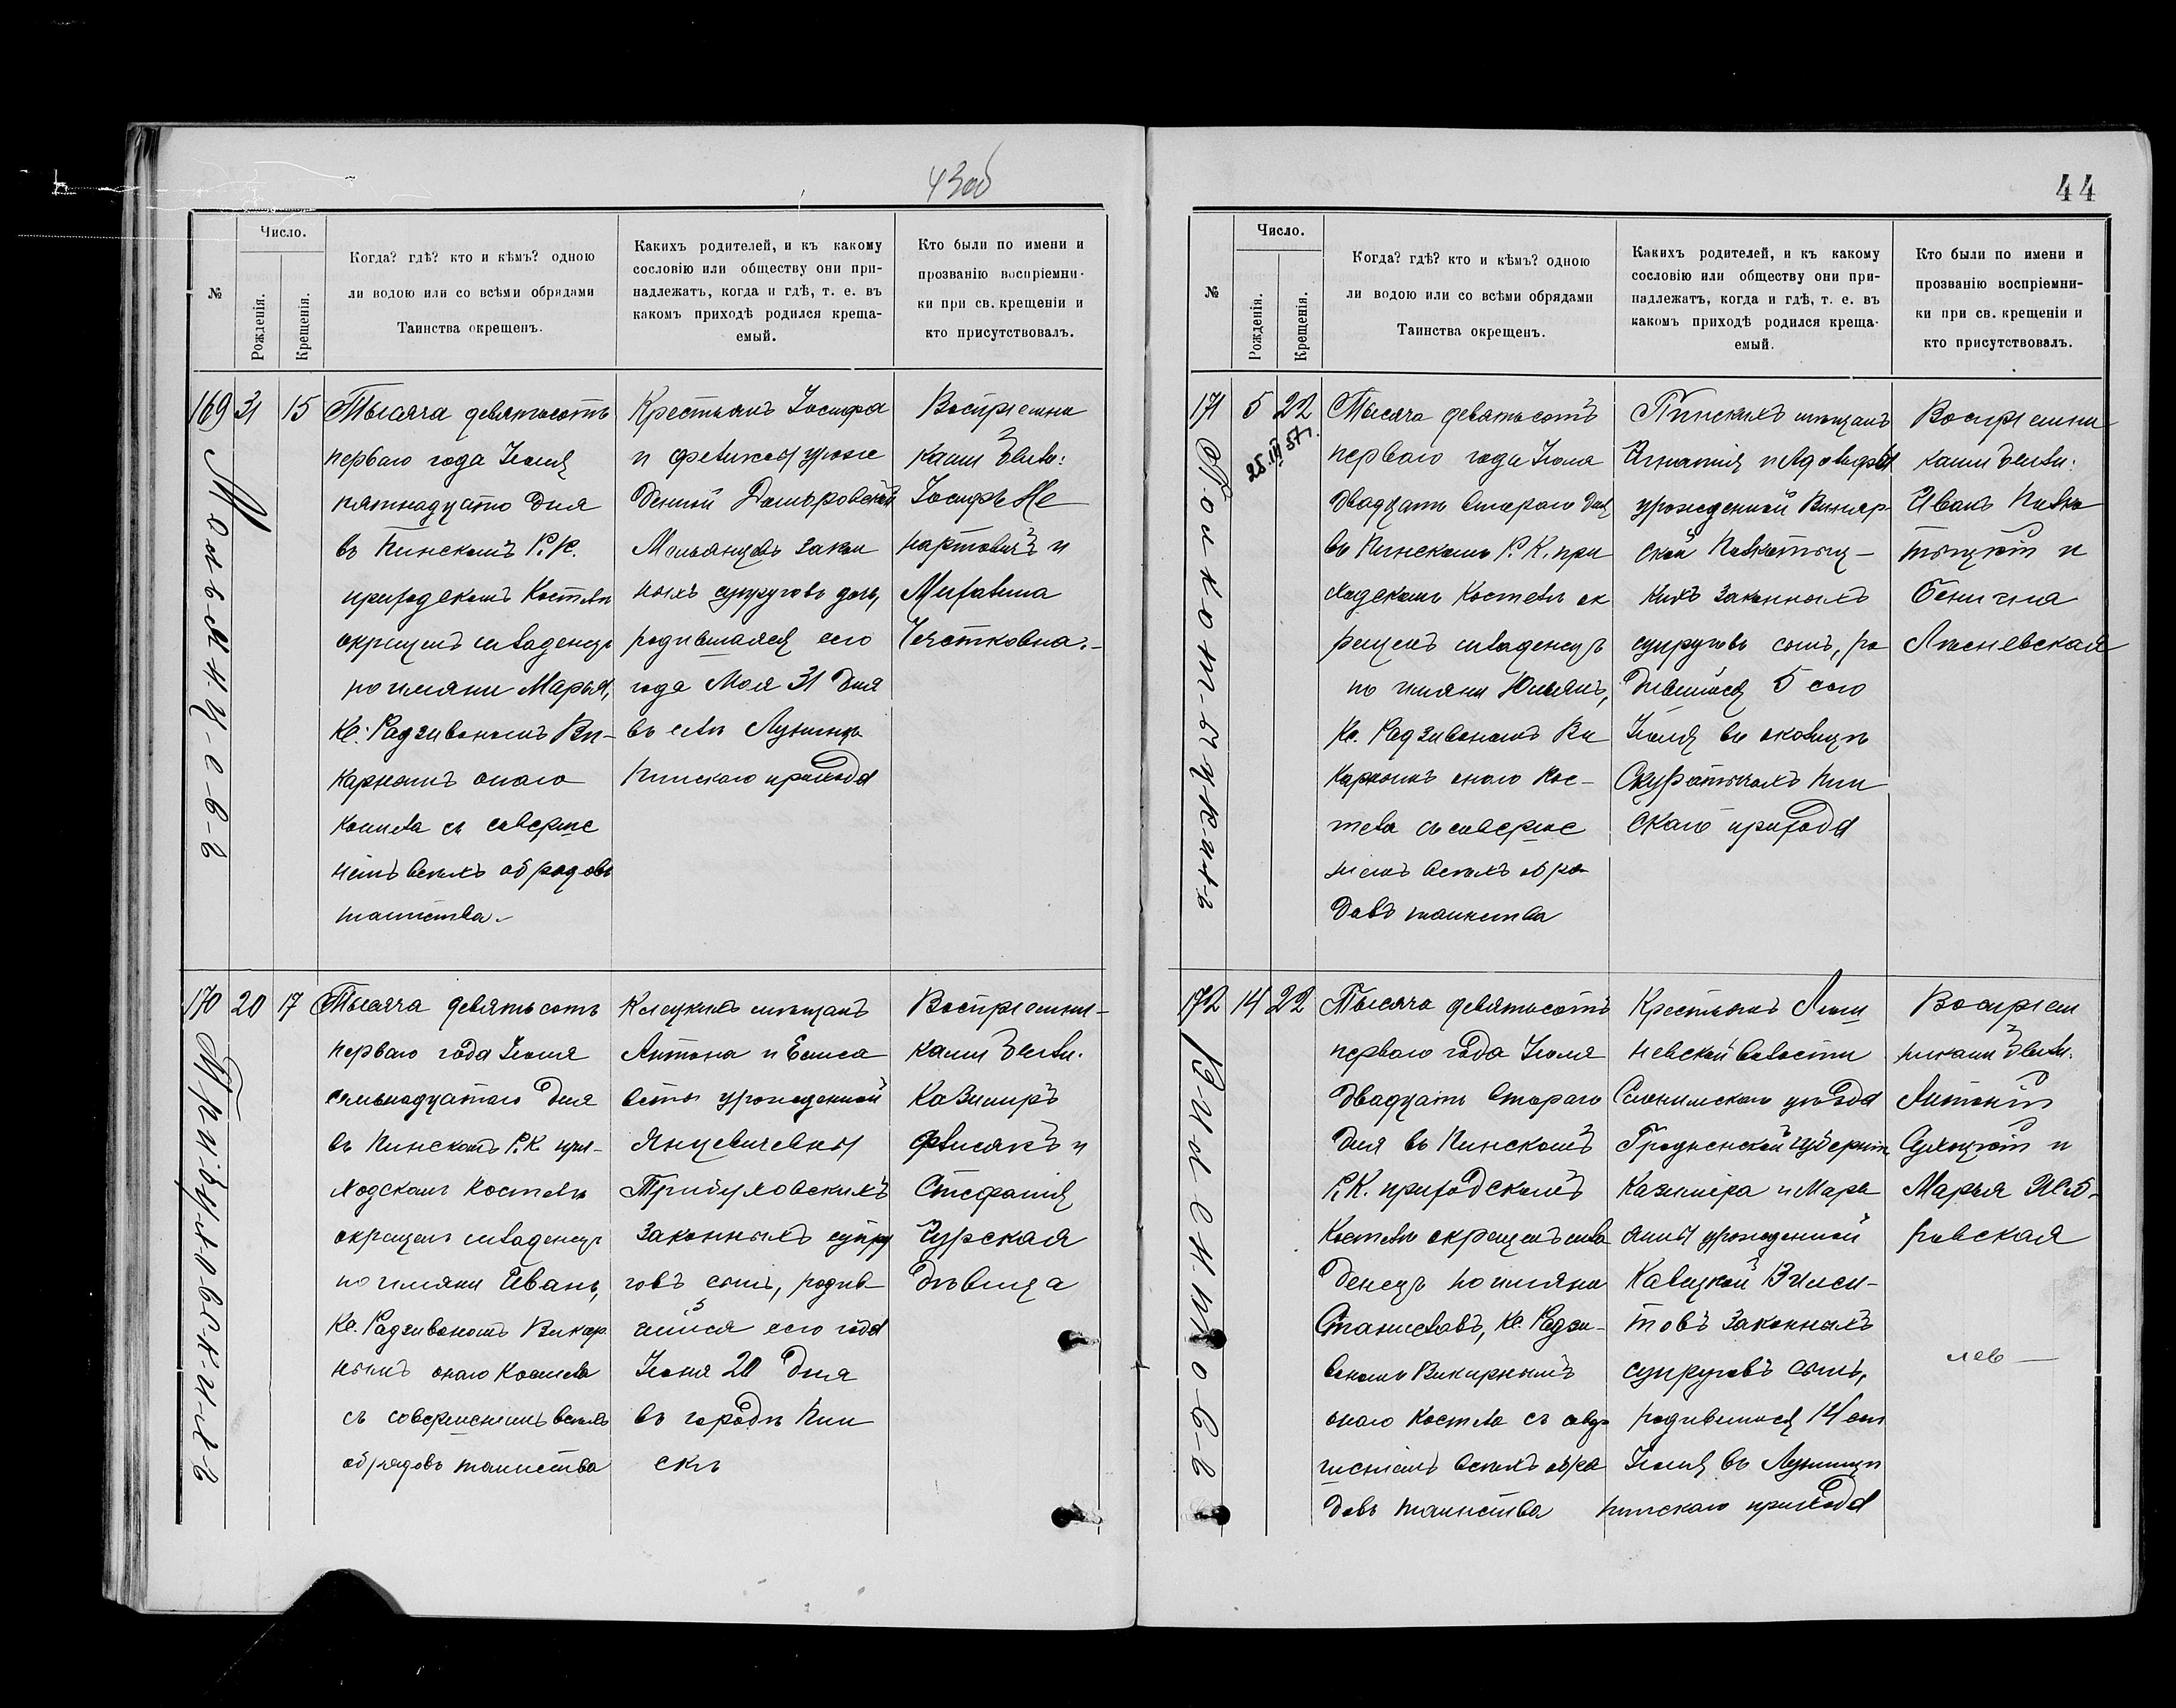 43об
№
Число.
Рожденія.
Крещенія.
Когда? гдѣ? кто и кѣмъ? одною
ли водою или со всѣми обрядами
Таинства окрещенъ.
Какихъ родителей, и къ какому
сословію или обществу они при-
надлежатъ, когда и гдѣ, т. е. въ
какомъ приходѣ родился креща-
емый.
Кто были по имени и
прозванію воспріемни-
ки при св. крещеніи и
кто присутствовалъ.
169
31
15
Тысяча девятьсотъ
перваго года Іюля
пятнадцато дня
въ Пинскомъ Р. К.
приходскомъ Костелѣ
окрещенъ младенецъ
по имяни Марья,
Кс. Радзивономъ Ви-
карнымъ онаго
Костела съ соверше
ніемъ всѣхъ обрядовъ
таинства.
Крестьянъ Іосифа
и Феликсы урож
денной Домбровской
законныхъ супруговъ дочь,
родившаяся сего
года Мая 31 дня
въ селѣ Лунинцѣ
Пинскаго прихода
Воспріемни
ками были:
Іосифъ Не
нартовичъ и
Михалина
170
20
17
Тысяча девятьсотъ
перваго года Іюля
семьнадцатаго дня
въ Пинскомъ Р. К. при-
ходскомъ Костелѣ
окрещенъ младенецъ
по имяни Иванъ,
Кс. Радзивономъ Викар
нымъ онаго Костела
съ совершеніемъ всѣхъ
обрядовъ таинства
Клецкихъ мѣщанъ
Антона и Елиса
веты урожденной
Янцевичевны
Трибуховскихъ
законныхъ супру
говъ сынъ, родив
шійся сего года
Іюня 20 дня
въ городѣ Пин
скѣ
Воспріемни-
ками были:
Казимиръ
и
Стефанія
Чурская
дѣвица
44
№
Число.
Рожденія.
Крещенія.
Когда? гдѣ? кто и кѣмъ? одною
ли водою или со всѣми обрядами
Таинства окрещенъ.
Какихъ родителей, и къ какому
сословію или обществу они при-
надлежатъ, когда и гдѣ, т. е. въ
какомъ приходѣ родился креща-
емый.
Кто были по имени и
прозванію воспріемни-
ки при св. крещеніи и
кто присутствовалъ.
171
5
22
25.III 57 г.
Тысяча девятьсотъ
перваго года Іюля
двадцать втораго дня
въ Пинскомъ Р. К. при
ходскомъ Костелѣ ок
рещенъ младенецъ
по имяни Юльянъ,
Кс. Радзивономъ Ви
карнымъ онаго Кос-
тела съ соверше
ніемъ всѣхъ обря
довъ таинства
Пинскихъ мѣщанъ
Игнатія и
урожденной
законныхъ
супруговъ сынъ, ро
дившійся 5 сего
Іюля въ околицѣ
Пин
скаго прихода
Воспріемни
ками были:
Иванъ
и
Лисневская
172
14
22
Тысяча девятьсотъ
перваго года Іюля
двадцать втораго
дня въ Пинскомъ
Р. К. приходскомъ
Костелѣ окрещенъ мла
денецъ по имяни
Станиславъ, Кс. Радзи-
вономъ Викарнымъ
онаго Костела съ совер
шеніемъ всѣхъ обря
довъ таинства
Крестьянъ
невской волости
Слонимскаго уѣзда
Гродненской губерніи
Казимера и Марь
янны урожденной
Вилен-
товъ законныхъ
супруговъ сынъ,
родившійся 14 сего
Іюля въ Лунинцѣ
пинскаго прихода
Воспріем
никами были:
Антоній
и
Марья